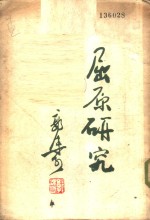 136028
屈原研究
郭沫若